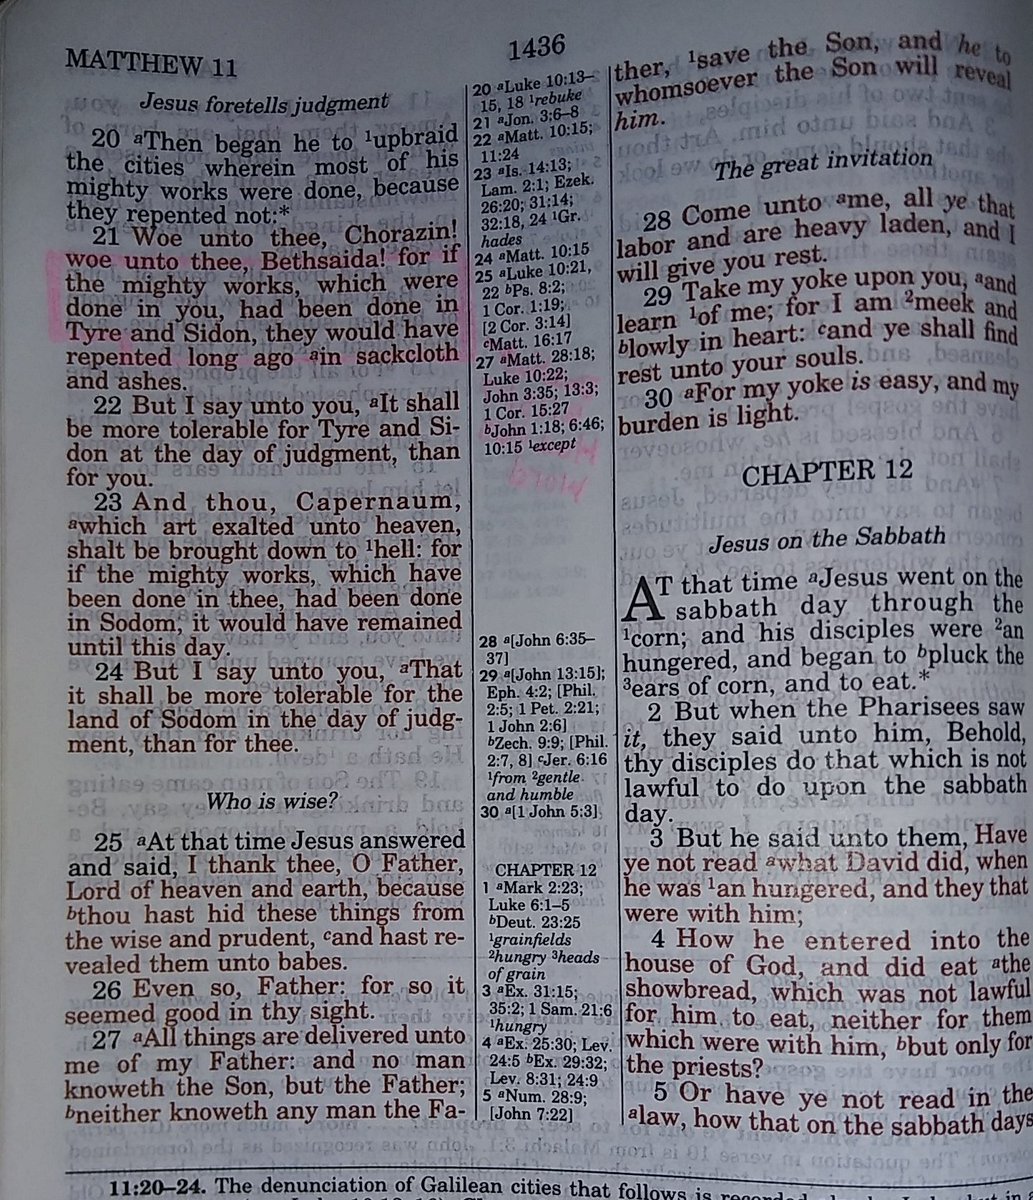 MATTHEW 11
1436
Jesus foretells judgment
20 aThen began he to 1upbraid
the cities wherein most of his
mighty works were done, because
they repented not:*
21 Woe unto thee, Chorazin!
woe unto thee, Bethsaida! for if
the mighty works, which were
done in you, had been done in
Tyre and Sidon, they would have
repented long ago ain sackcloth
and ashes.
22 But I say unto you, aIt shall
be more tolerable for Tyre and Si-
don at the day of judgment, than
for you.
23 And thou, Capernaum,
awhich art exalted unto heaven,
shalt be brought down to 1hell: for
if the mighty works, which have
been done in thee, had been done
in Sodom, it would have remained
until this day.
24 But I say unto you, aThat
it shall be more tolerable for the
land of Sodom in the day of judg-
ment, than for thee.
Who is wise?
25 aAt that time Jesus answered
and said, I thank thee, O Father,
Lord of heaven and earth, because
bthou hast hid these things from
the wise and prudent, cand hast re-
vealed them unto babes.
26 Even so, Father: for so it
seemed good in thy sight.
27 aAll things are delivered unto
me of my Father: and no man
knoweth the Son, but the Father;
bneither knoweth any man the Fa-
20 aLuke 10:13–
15, 18 1rebuke
21 aJon. 3:6–8
22 aMatt. 10:15;
11:24
23 aIs. 14:13;
Lam. 2:1; Ezek.
26:20; 31:14;
32:18, 24 1Gr.
hades
24 aMatt. 10:15
25 aLuke 10:21,
22 bPs. 8:2;
1 Cor. 1:19;
[2 Cor. 3:14]
cMatt. 16:17
27 aMatt. 28:18;
Luke 10:22;
John 3:35; 13:3;
1 Cor. 15:27
bJohn 1:18; 6:46;
10:15 1except
28 a[John 6:35–
37]
29 a[John 13:15];
Eph. 4:2; [Phil.
2:5; 1 Pet. 2:21;
1 John 2:6]
bZech. 9:9; [Phil.
2:7, 8] cJer. 6:16
1from 2gentle
and humble
30 a[1 John 5:3]
CHAPTER 12
1 aMark 2:23;
Luke 6:1–5
bDeut. 23:25
1grainfields
2hungry 3heads
of grain
3 aEx. 31:15;
35:2; 1 Sam. 21:6
1hungry
4 aEx. 25:30; Lev.
24:5 bEx. 29:32;
Lev. 8:31; 24:9
5 aNum. 28:9;
[John 7:22]
ther, 1save the Son, and he to
whomsoever the Son will reveal
him.
The great invitation
28 Come unto ame, all ye that
labor and are heavy laden, and I
will give you rest.
29 Take my yoke upon you, aand
learn 1of me; for I am 2meek and
blowly in heart: cand ye shall find
rest unto your souls.
30 aFor my yoke is easy, and my
burden is light.
CHAPTER 12
Jesus on the Sabbath
AT that time aJesus went on the
sabbath day through the
1corn; and his disciples were 2an
hungered, and began to bpluck the
3ears of corn, and to eat.*
2 But when the Pharisees saw
it, they said unto him, Behold,
thy disciples do that which is not
lawful to do upon the sabbath
day.
3 But he said unto them, Have
ye not read awhat David did, when
he was 1an hungered, and they that
were with him;
4 How he entered into the
house of God, and did eat athe
showbread, which was not lawful
for him to eat, neither for them
which were with him, bbut only for
the priests?
5 Or have ye not read in the
alaw, how that on the sabbath days
11:20–24. The denunciation of Galilean cities that follows is